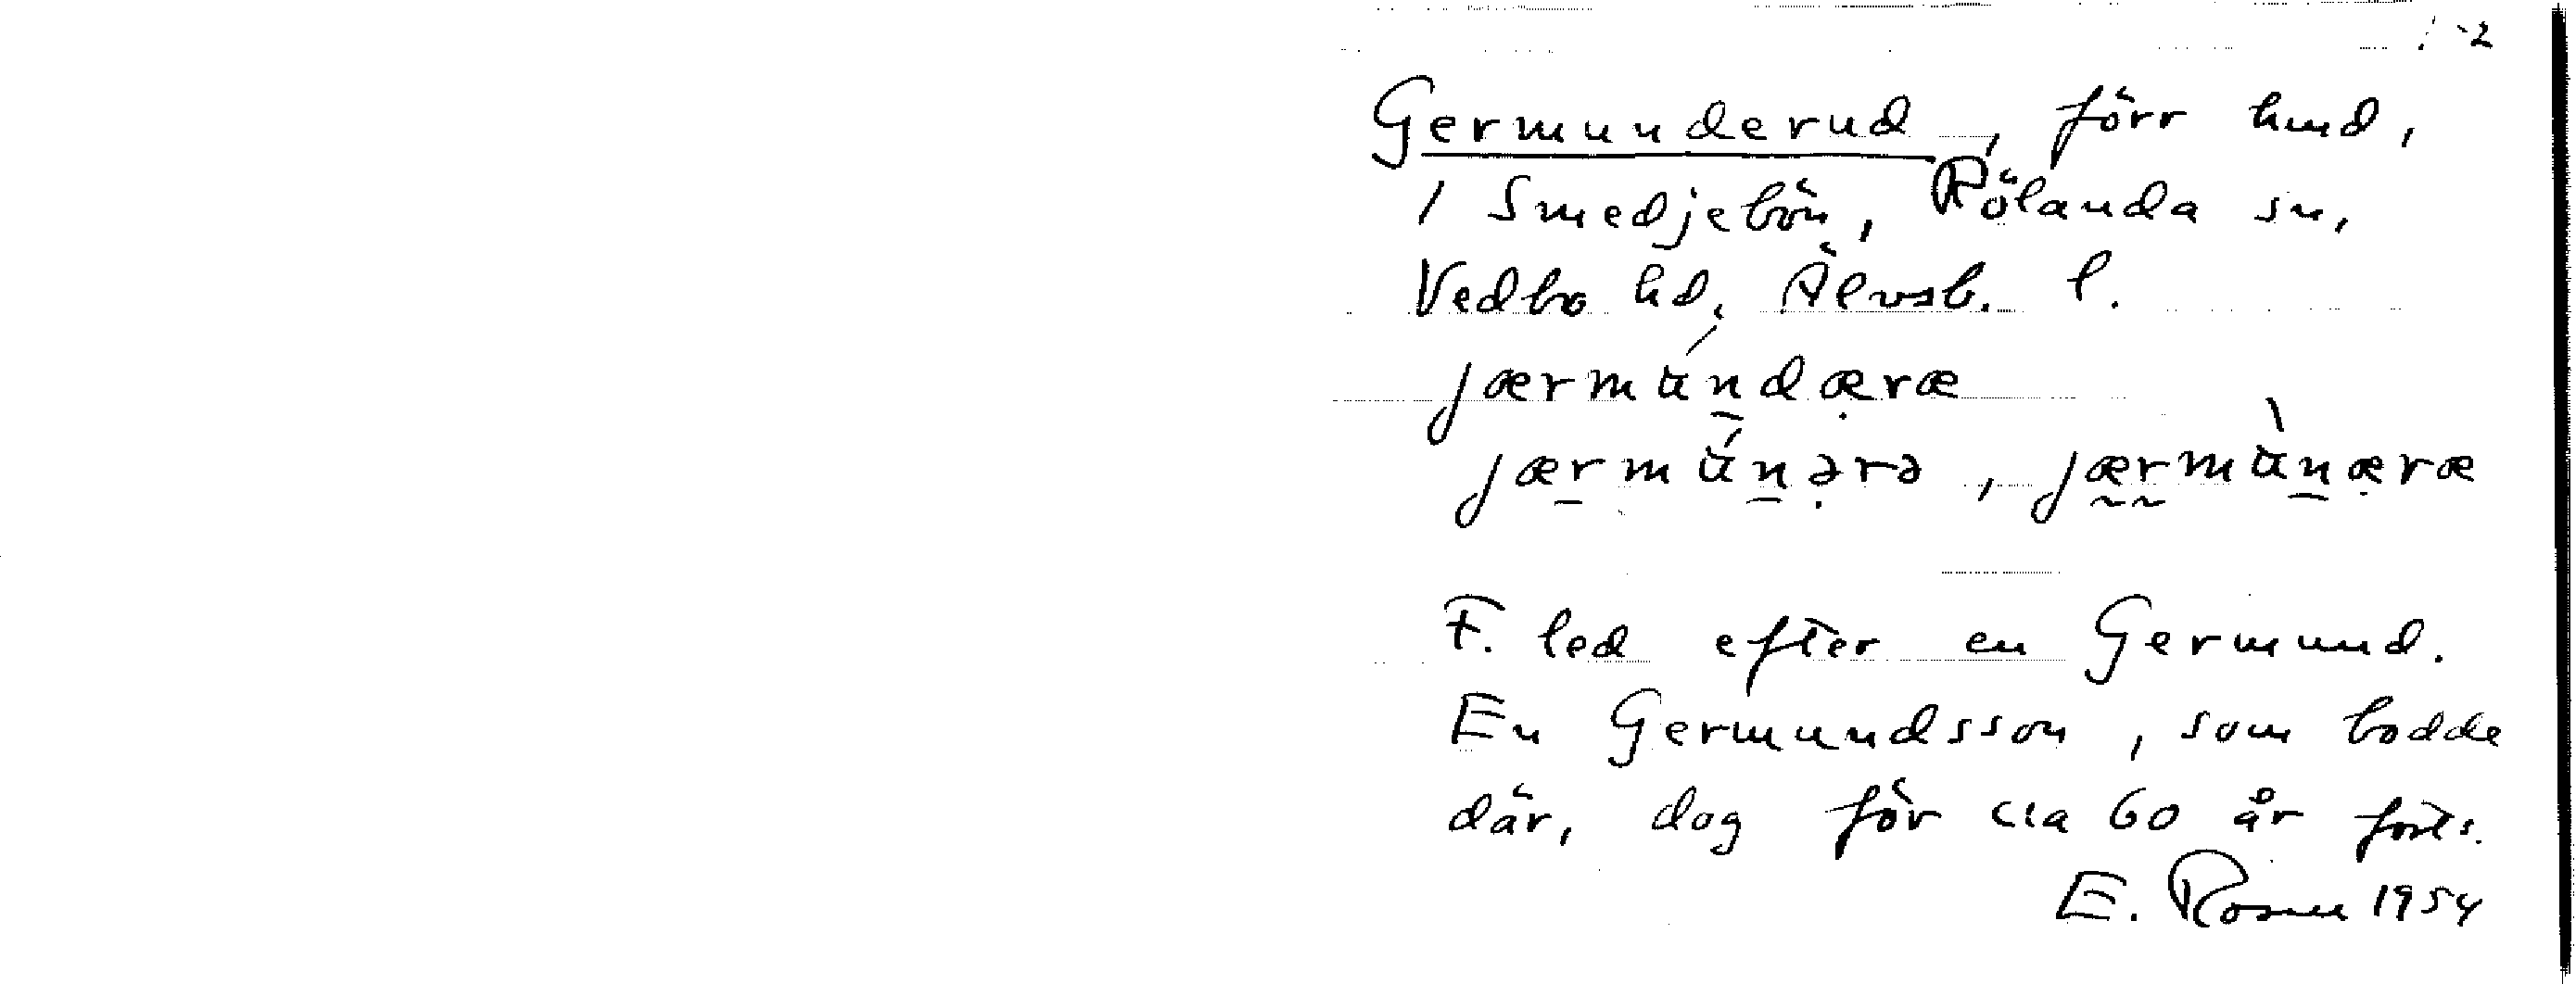 : -2
Germunderud, förr hmd,
i Smedjebön, Rölanda sn,
Vedbo hd, Älvsb. l.
jærmúndæræ
jærmúnərə, jærmùnæræ
F. led efter en Germund.
En Germundsson, som bodde
där, dog för cia 60 år forts.
E. Rosell 1954